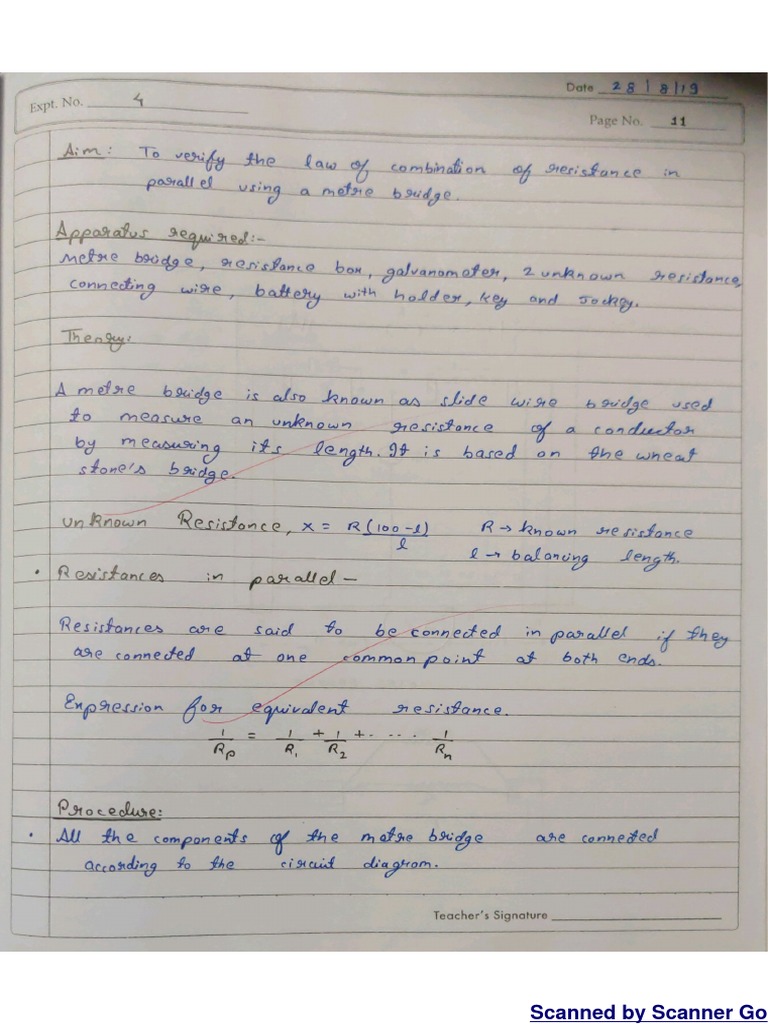 Date 28/8/19
Expt. No. 4
Page No. 11
Aim: To verify the law of combination of resistance in
parallel using a metre bridge.
Apparatus required:-
Metre bridge, resistance box, galvanometer, 2 unknown resistance,
connecting wire, battery with holder, key and Jockey.
Theory:
A metre bridge is also known as slide wire bridge used
to measure an unknown resistance of a conductor
by measuring its length. It is based on the wheat
stone's bridge.
unknown Resistance, x = R(100-l)/l R → known resistance
l → balancing length.
• Resistances in parallel -
Resistances are said to be connected in parallel if they
are connected at one common point at both ends.
Expression for equivalent resistance.
1/Rp = 1/R1 + 1/R2 + . ... 1/Rn
Procedure:
• All the components of the metre bridge are connected
according to the circuit diagram.
Teacher's Signature
Scanned by Scanner Go